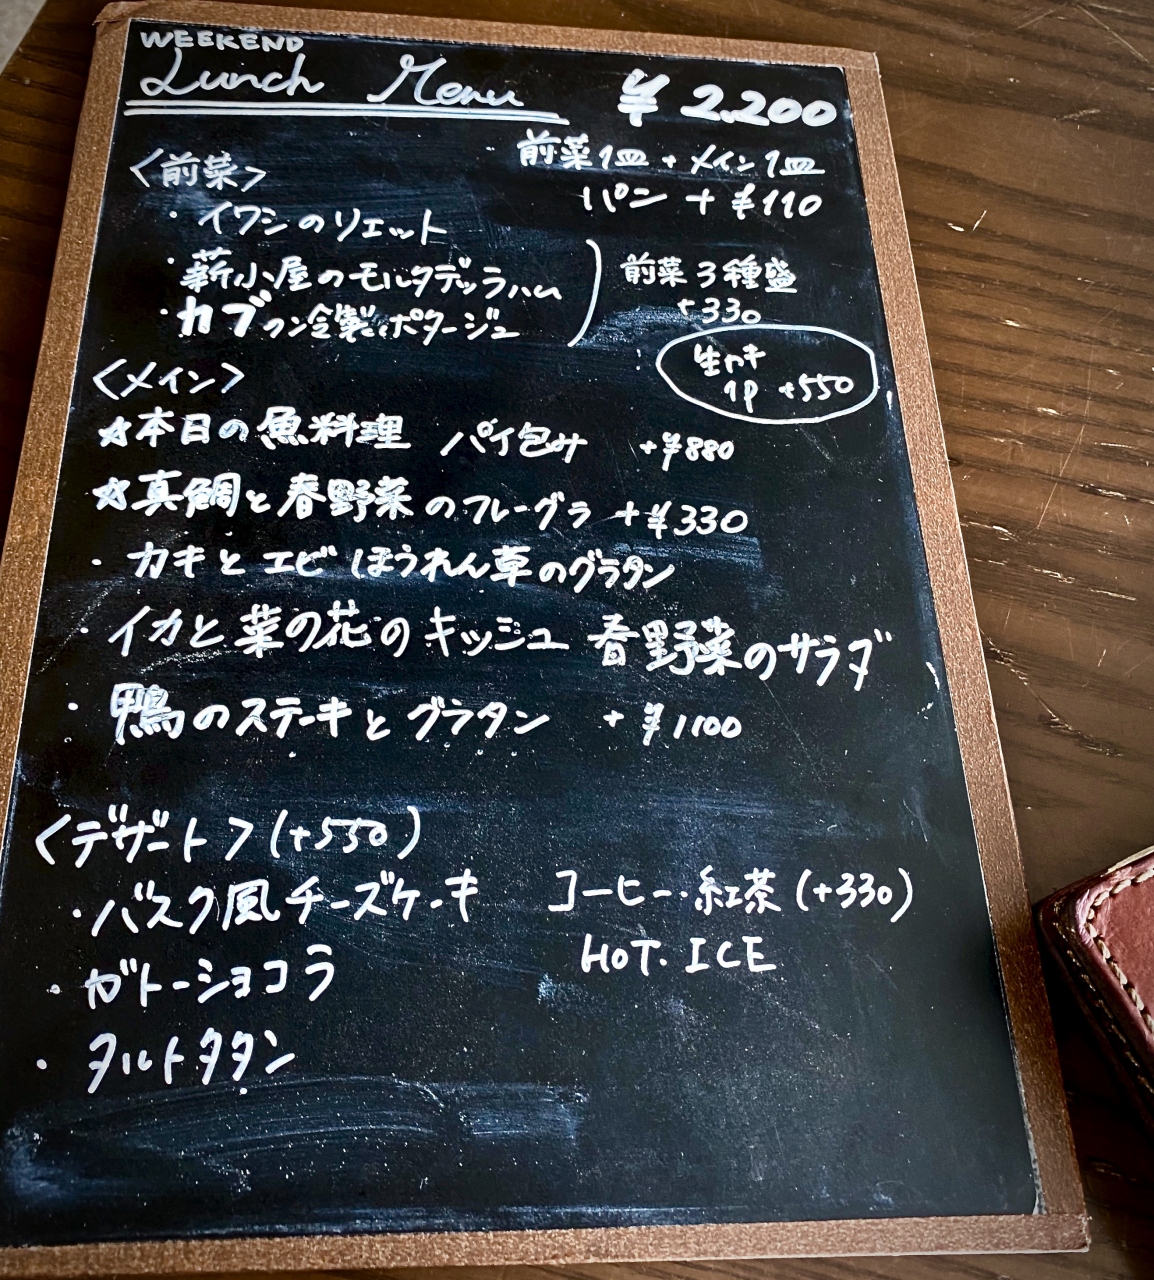 WEEKEND
Lunch Menu ¥2,200
前菜1皿+メイン1皿
パン +¥110
<前菜>
・イワシのリエット
・薪小屋のモルタデッラハム
・カブの冷製ポタージュ
前菜3種盛
+330
生カキ
1P +550
<メイン>
☆本日の魚料理 パイ包み +¥880
☆真鯛と春野菜のフレーグラ +¥330
・カキとエビ ほうれん草のグラタン
・イカと菜の花のキッシュ 春野菜のサラダ
・鴨のステーキとグラタン +¥1100
<デザート>(+550)
・バスク風チーズケーキ
・ガトーショコラ
・タルトタタン
コーヒー・紅茶(+330)
HOT・ICE